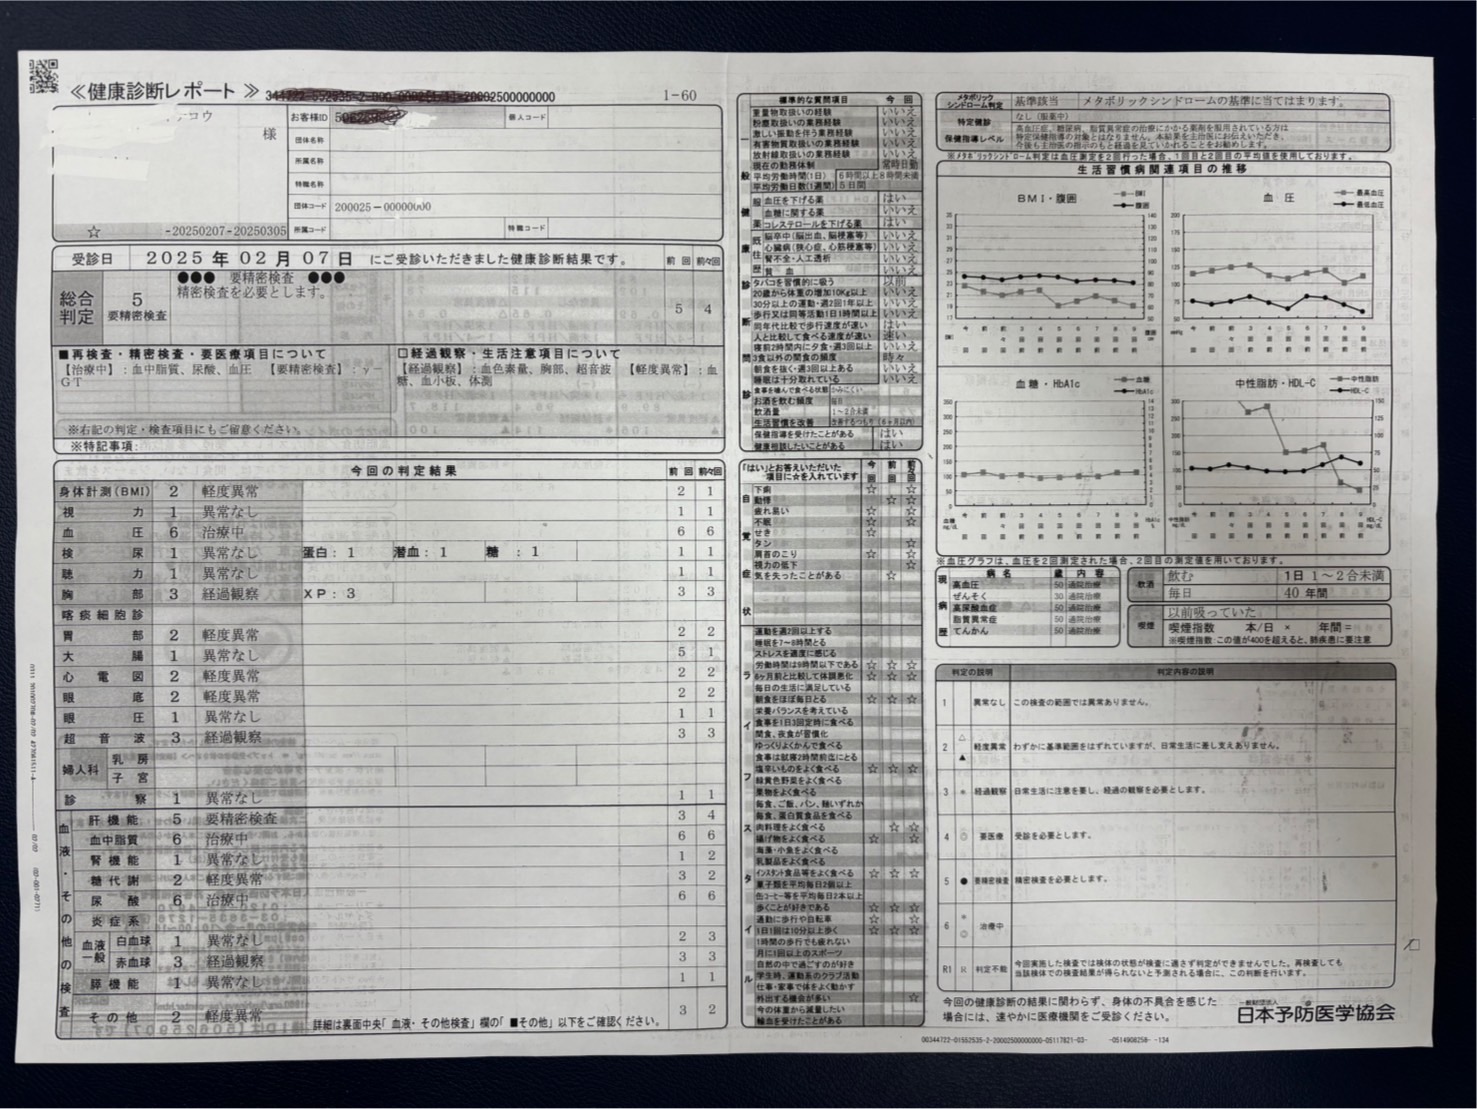 ≪健康診断レポート≫
1-60
様
お客様ID
個人コード
団体名称
所属名称
特職名称
団体コード 200025-00000000
☆ -20250207-20250305
所属コード
特職コード
受診日 2025年02月07日 にご受診いただきました健康診断結果です。 前回 前々回
総合判定 5 要精密検査
●●● 要精密検査 ●●●
精密検査を必要とします。
5 4
■再検査・精密検査・要医療項目について
【治療中】:血中脂質、尿酸、血圧 【要精密検査】:γ-GT
□経過観察・生活注意項目について
【経過観察】:血色素量、胸部、超音波 【軽度異常】:血糖、血小板、体測
※右記の判定・検査項目にもご留意ください。
※特記事項:
今回の判定結果 前回 前々回
身体計測(BMI) 2 軽度異常 2 1
視力 1 異常なし 1 1
血圧 6 治療中 6 6
検尿 1 異常なし 蛋白:1 潜血:1 糖:1 1 1
聴力 1 異常なし 1 1
胸部 3 経過観察 XP:3 3 3
喀痰細胞診
胃部 2 軽度異常 2 2
大腸 1 異常なし 5 1
心電図 2 軽度異常 2 2
眼底 2 軽度異常 2 2
眼圧 1 異常なし 1 1
超音波 3 経過観察 3 3
婦人科 乳房
子宮
診察 1 異常なし 1 1
血液・その他の検査
肝機能 5 要精密検査 3 4
血中脂質 6 治療中 6 6
腎機能 1 異常なし 1 2
糖代謝 2 軽度異常 3 2
尿酸 6 治療中 6 6
炎症系
血液一般 白血球 1 異常なし 2 3
赤血球 3 経過観察 3 3
膵機能 1 異常なし 1 1
その他 2 軽度異常 3 2
詳細は裏面中央「血液・その他検査」欄の「■その他」以下をご確認ください。
標準的な質問項目 今回
一般健康診断問診
重量物取扱いの経験 いいえ
粉塵取扱いの業務経験 いいえ
激しい振動を伴う業務経験 いいえ
有害物質取扱いの業務経験 いいえ
放射線取扱いの業務経験 いいえ
現在の勤務体制 常時日勤
平均労働時間(1日) 6時間以上8時間未満
平均労働日数(1週間) 5日間
服薬
血圧を下げる薬 はい
血糖に関する薬 いいえ
コレステロールを下げる薬 はい
既往歴
脳卒中(脳出血、脳梗塞等) いいえ
心臓病(狭心症、心筋梗塞等) いいえ
腎不全・人工透析 いいえ
貧血 いいえ
タバコを習慣的に吸う 以前
20歳から体重の増加10Kg以上 いいえ
30分以上の運動・週2回1年以上 いいえ
歩行又は同等活動1日1時間以上 いいえ
同年代比較で歩行速度が速い はい
人と比較して食べる速度が速い 速い
寝前2時間内に夕食・週3回以上 いいえ
3食以外の間食の頻度 時々
朝食を抜く・週3回以上ある いいえ
睡眠は十分取れている いいえ
食事を噛んで食べる状態 かみにくい
お酒を飲む頻度 毎日
飲酒量 1~2合未満
生活習慣を改善 改善するつもり(6ヶ月以内)
保健指導を受けたことがある はい
健康相談したいことがある はい
「はい」とお答えいただいた項目に☆を入れています 今回 前回 前々回
自覚症状
下痢 ☆ ☆
動悸 ☆ ☆
疲れ易い ☆ ☆
不眠 ☆ ☆
せき ☆
タン ☆
肩首のこり ☆ ☆
視力の低下 ☆
気を失ったことがある ☆
ライフスタイル
運動を週2回以上する
睡眠を7~8時間とる
ストレスを適度に感じる
労働時間は9時間以下である ☆ ☆ ☆
6ヶ月前と比較して体調悪化 ☆ ☆ ☆
毎日の生活に満足している
朝食をほぼ毎日とる ☆ ☆ ☆
栄養バランスを考えている
食事を1日3回定時に食べる
間食、夜食が習慣化
ゆっくりよくかんで食べる
食事は就寝2時間前迄にとる
塩辛いものをよく食べる ☆ ☆ ☆
緑黄色野菜をよく食べる
果物をよく食べる
毎食、ご飯、パン、麺いずれか
毎食、蛋白質食品を食べる
肉料理をよく食べる ☆ ☆
揚げ物をよく食べる ☆ ☆
海藻・小魚をよく食べる
乳製品をよく食べる
インスタント食品等をよく食べる ☆ ☆ ☆
菓子類を平均毎日2個以上
缶コーヒー等を平均毎日2本以上
歩くことが好きである ☆ ☆ ☆
通勤に歩行や自転車 ☆ ☆
1日1回は10分以上歩く ☆ ☆ ☆
1時間の歩行でも疲れない
月に1回以上のスポーツ
自然の中で過ごすのが好き
学生時、運動系のクラブ活動
仕事・家事で体をよく動かす
外出する機会が多い ☆
今の体重から減量したい
輸血を受けたことがある
メタボリックシンドローム判定 基準該当 メタボリックシンドロームの基準に当てはまります。
特定健診保健指導レベル なし(服薬中)
高血圧症、糖尿病、脂質異常症の治療にかかる薬剤を服用されている方は
特定保健指導の対象とはなりません。本結果を主治医にお伝えいただき、
今後も主治医の指示のもと経過を見ていかれることをお勧めします。
※メタボリックシンドローム判定は血圧測定を2回行った場合、1回目と2回目の平均値を使用しております。
生活習慣病関連項目の推移
BMI・腹囲 BMI 腹囲
血圧 最高血圧 最低血圧
血糖・HbA1c 血糖 HbA1c
中性脂肪・HDL-C 中性脂肪 HDL-C
※血圧グラフは、血圧を2回測定された場合、2回目の測定値を用いております。
現病歴 病名 歳 内容
高血圧 50 通院治療
ぜんそく 30 通院治療
高尿酸血症 50 通院治療
脂質異常症 50 通院治療
てんかん 50 通院治療
飲酒 飲む 1日 1~2合未満
毎日 40 年間
喫煙 以前吸っていた
喫煙指数 本/日 × 年間=
※喫煙指数 この値が400を超えると、肺疾患に要注意
判定の説明 判定内容の説明
1 異常なし この検査の範囲では異常ありません。
2 △ ▲ 軽度異常 わずかに基準範囲をはずれていますが、日常生活に差し支えありません。
3 * 経過観察 日常生活に注意を要し、経過の観察を必要とします。
4 ◎ 要医療 受診を必要とします。
5 ● 要精密検査 精密検査を必要とします。
6 * ◎ 治療中
R1 判定不能 今回実施した検査では検体の状態が検査に適さず判定ができませんでした。再検査しても
当該検体での検査結果が得られないと予測される場合に、この判断を行います。
今回の健康診断の結果に関わらず、身体の不具合を感じた
場合には、速やかに医療機関をご受診ください。
一般財団法人
日本予防医学協会
00344722-01552535-2-20002500000000-05117821-03- -0514908258- -134